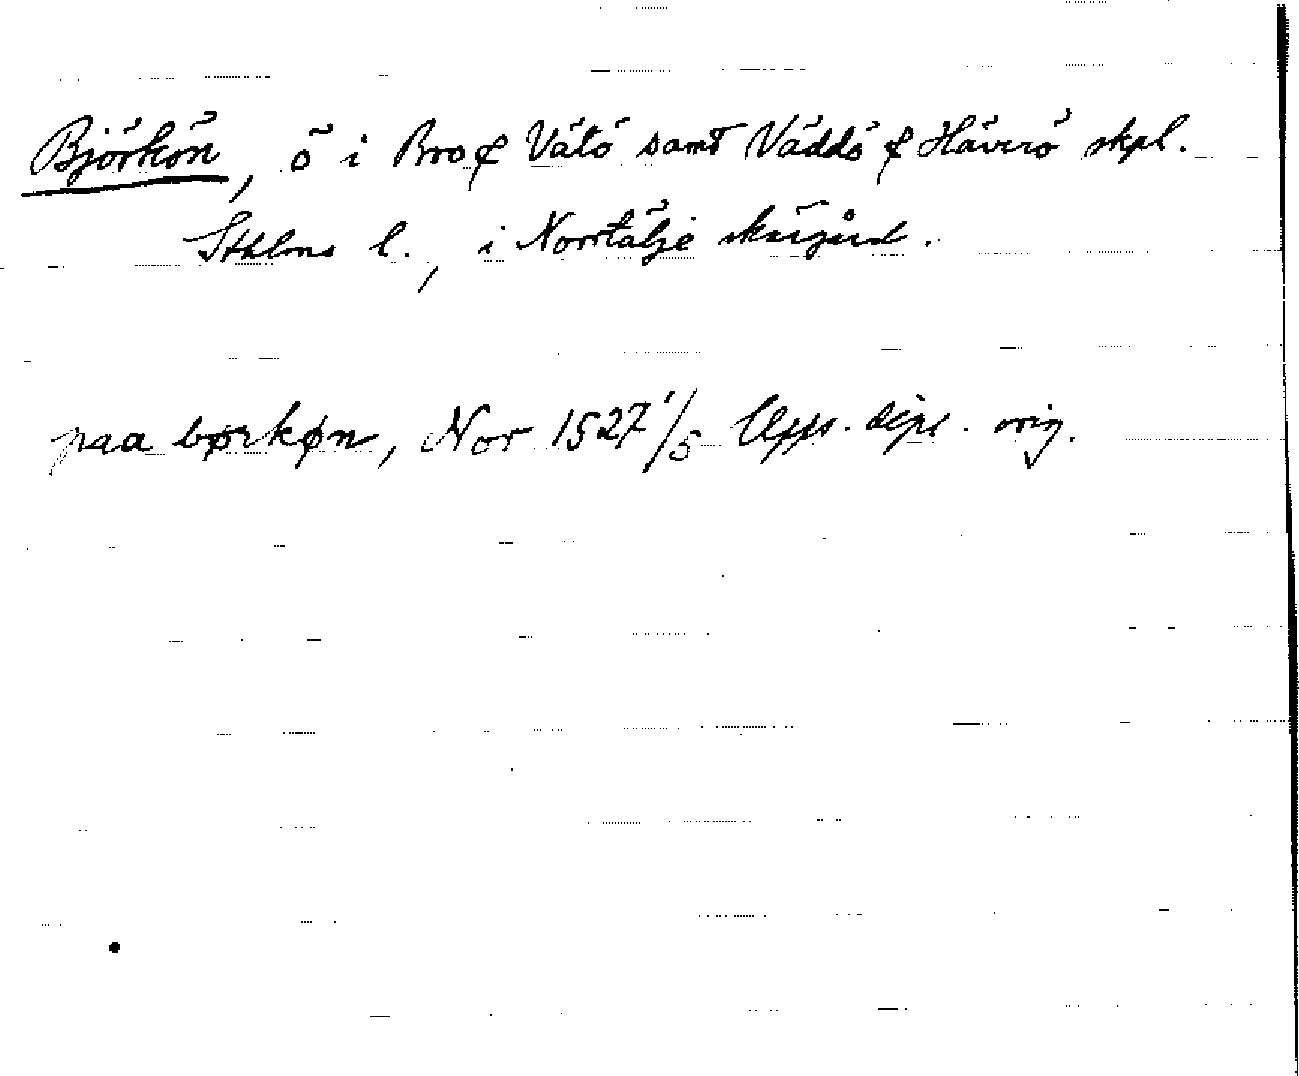 Björkön, ö i Bro & Vätö samt Väddö & Häverö skpl.
Sthlms l., i Norrtälje skärgård.
paa børkøn, Nor 1527 1/5 Upps. dipl. orig.